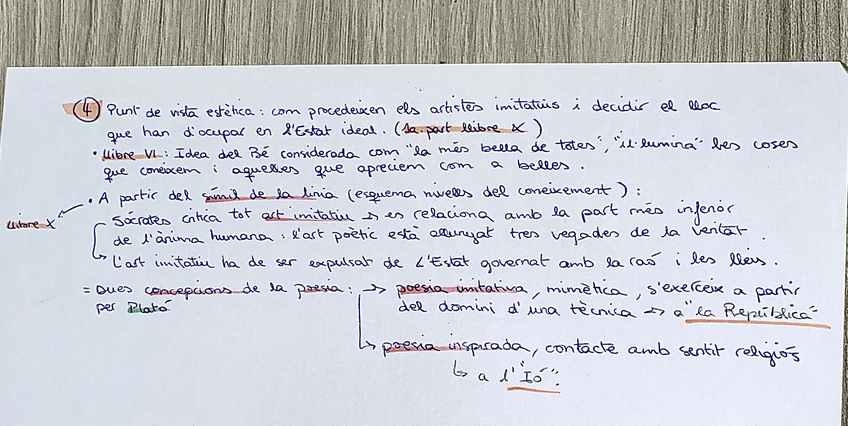 4 Punt de vista estètica: com procedeixen els artistes imitatius i decidir el lloc
que han d'ocupar en l'Estat ideal. (1a part llibre X)
• Llibre VI: Idea del Bé considerada com "la més bella de totes", "il·lumina" les coses
que coneixem i aquelles que apreciem com a belles.
• A partir del símil de la línia (esquema nivells del coneixement):
llibre X
Sócrates critica tot art imitatiu → es relaciona amb la part més inferior
de l'ànima humana: l'art poètic està allunyat tres vegades de la veritat.
↳ L'art imitatiu ha de ser expulsat de L'Estat governat amb la raó i les lleis.
= Dues concepcions de la poesia: → poesia imitativa, mimètica, s'exerceix a partir
per Plató
del domini d'una tècnica → a "la República"
↳ poesia inspirada, contacte amb sentit religiós
↳ a l'"Ió".